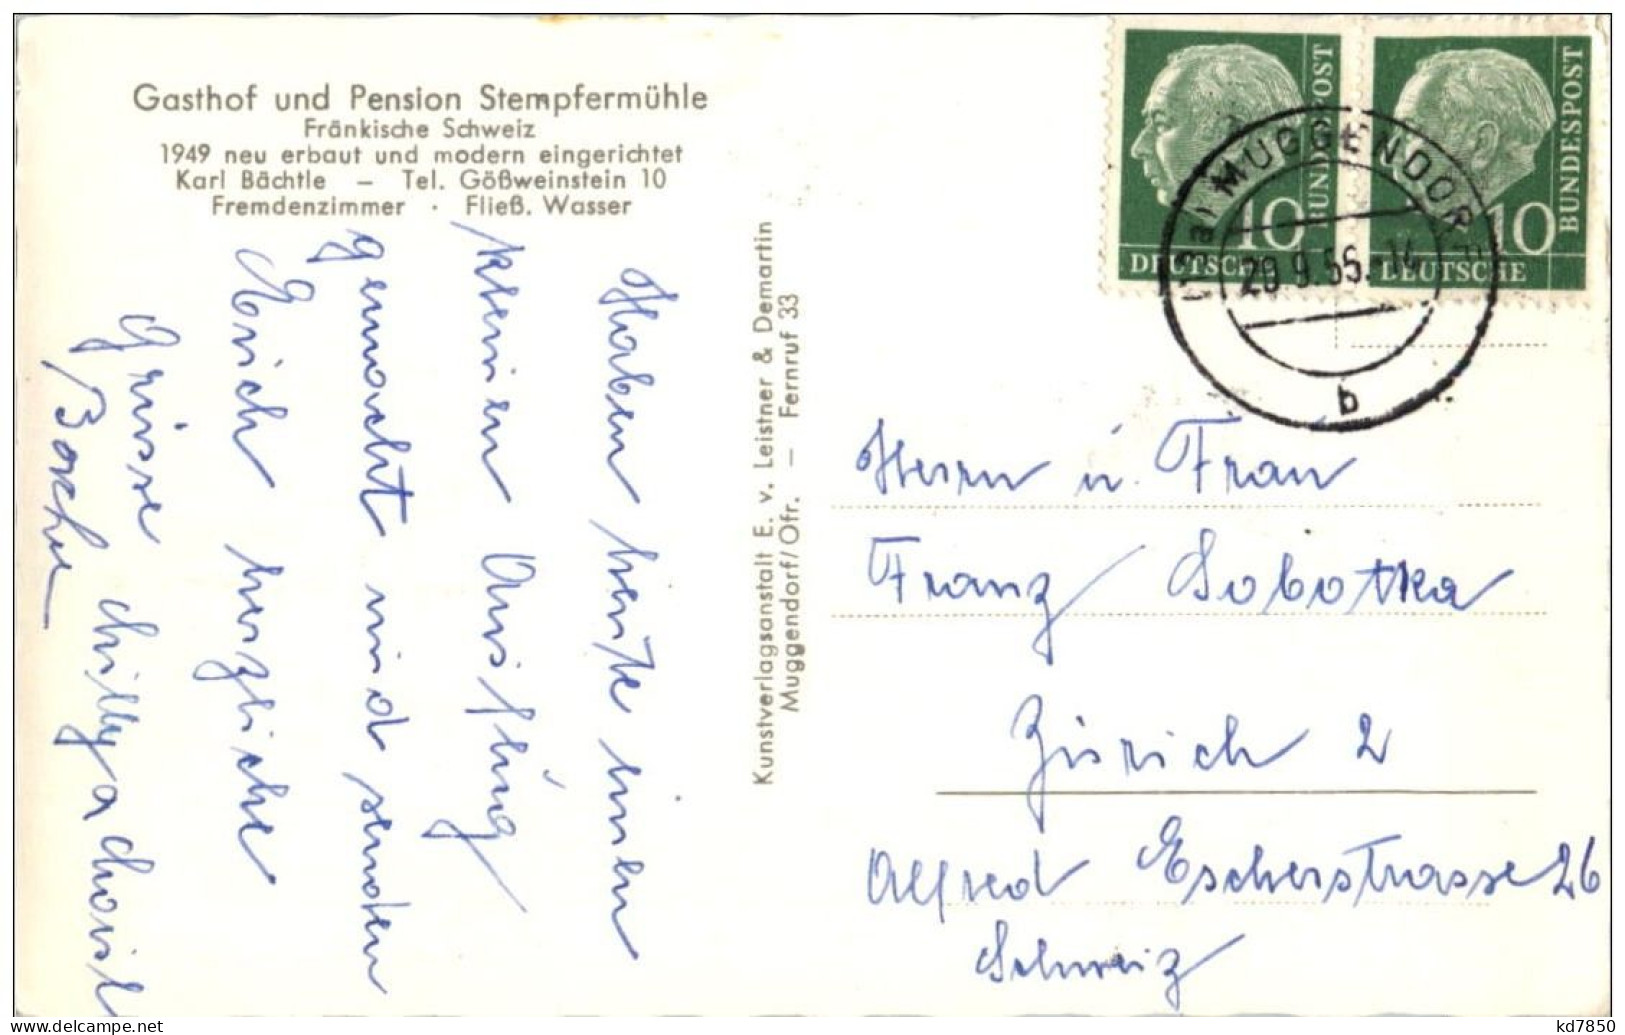 Gasthof und Pension Stempfermühle
Fränkische Schweiz
1949 neu erbaut und modern eingerichtet
Karl Bächtle – Tel. Gößweinstein 10
Fremdenzimmer · Fließ. Wasser
Haben heute einen
kleinen Ausflug
gemacht und senden
Euch herzliche
Grüsse
Kunstverlagsanstalt E. v. Leistner & Demartin
Muggendorf/Ofr. – Fernruf 33
10 BUNDESPOST
DEUTSCHE
10 BUNDESPOST
DEUTSCHE
MUGGENDORF
29.9.56.-14
b
Herrn u. Frau
Franz Sobotka
Zürich 2
Alfred Escherstrasse 26
Schweiz
www.delcampe.net
kd7850